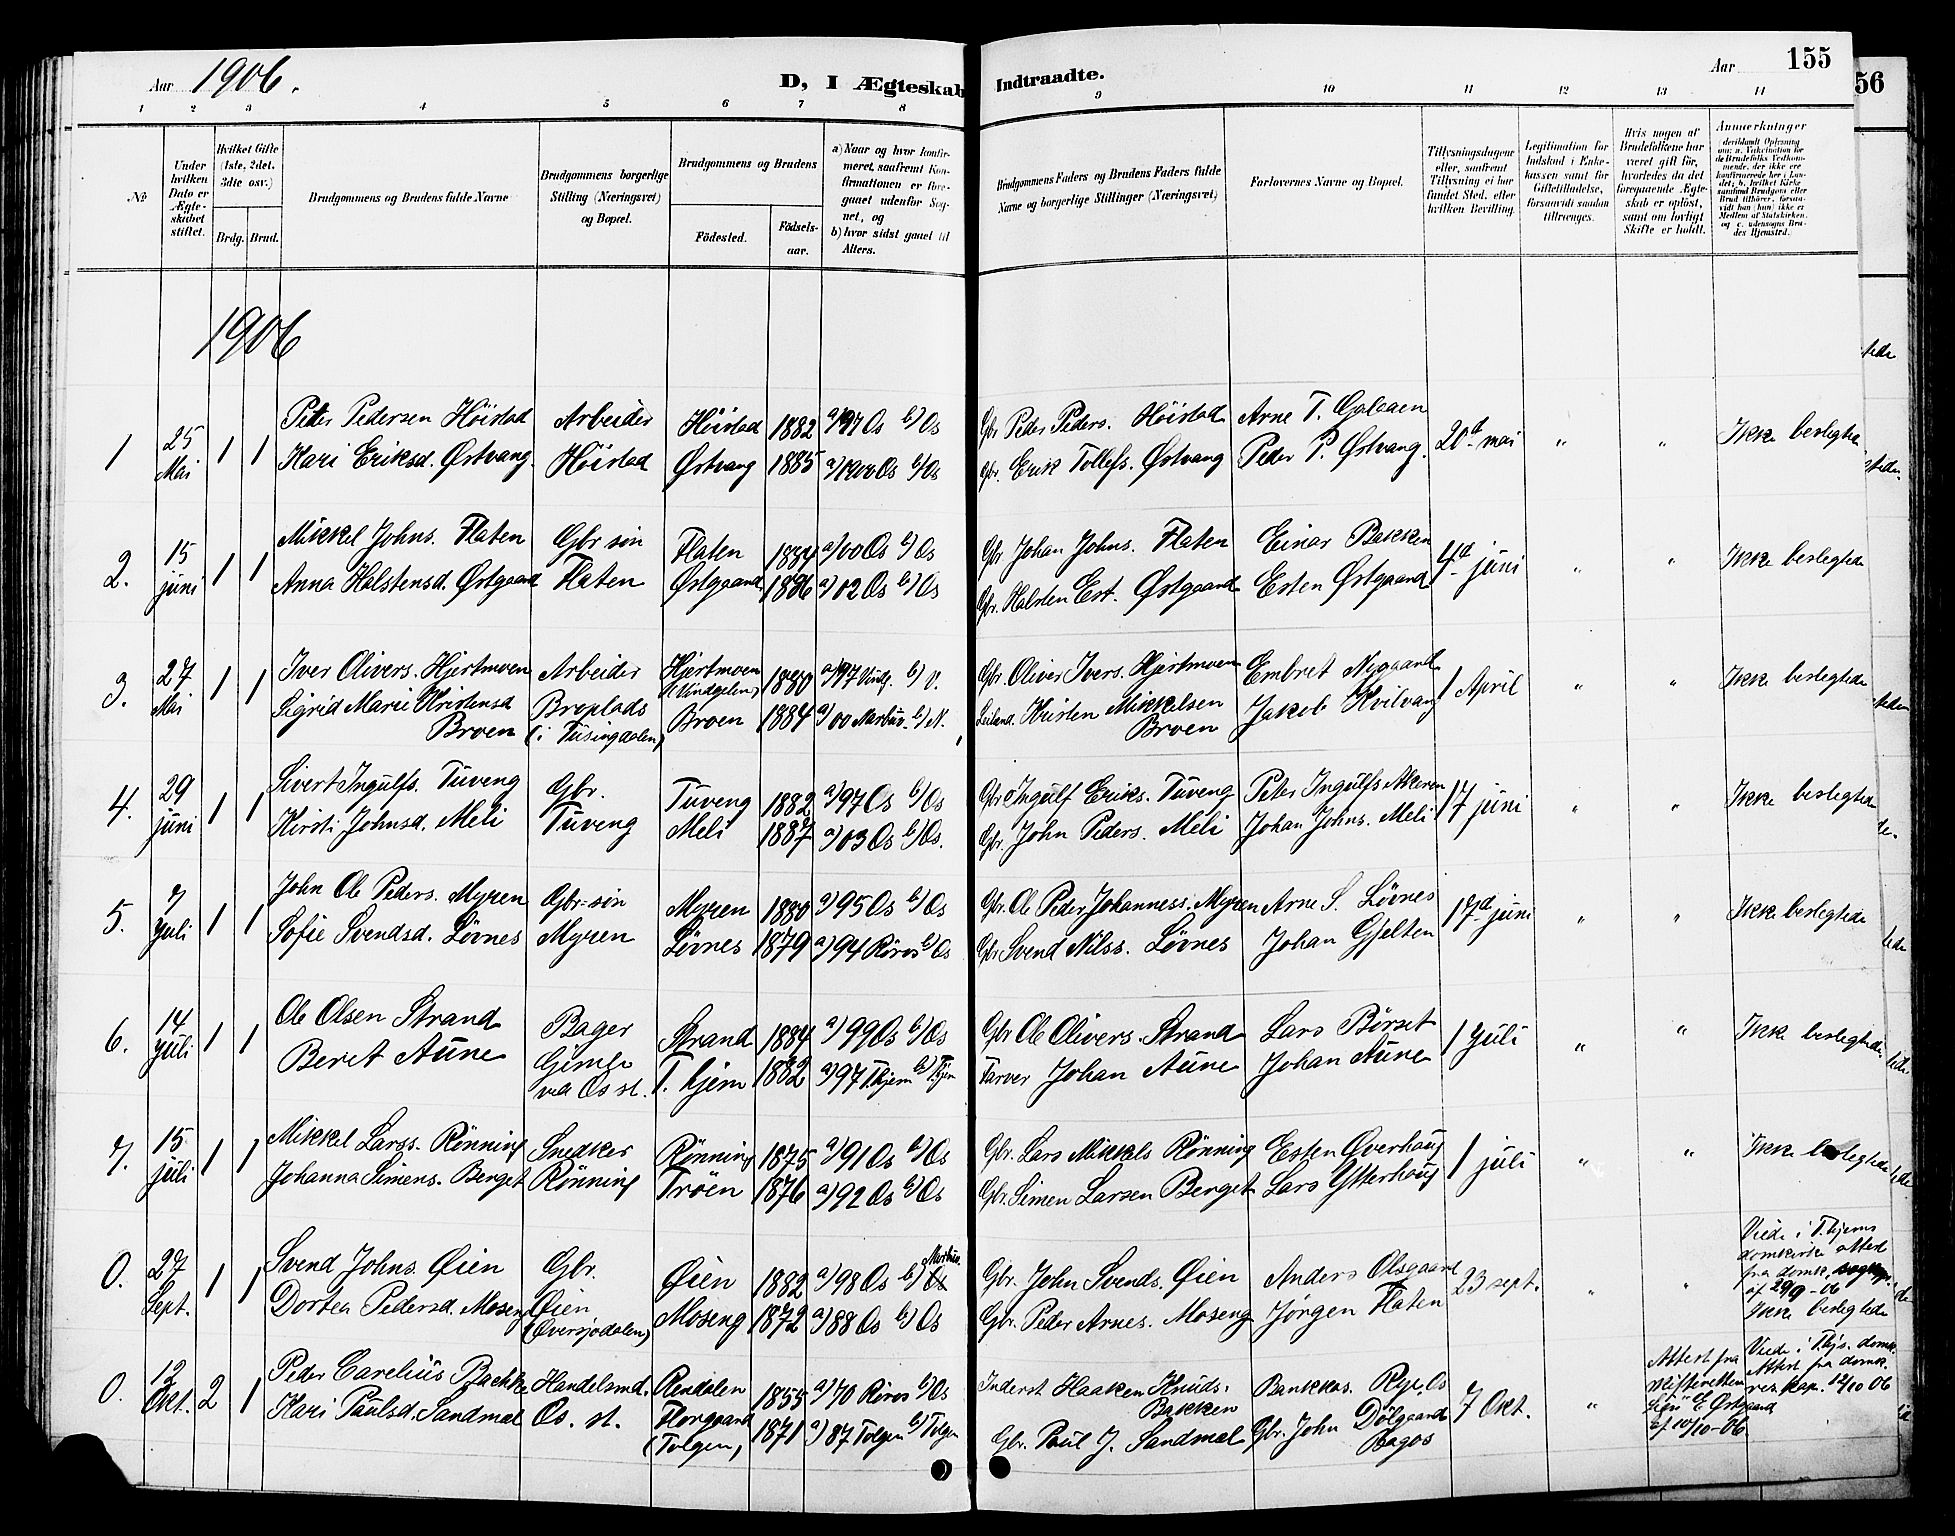 Aar 1906.
D, I Ægteskab Indtraadte.
Aar 155
56
1 2 3 4 5 6 7 8 9 10 11 12 13 14
No
Under hvilken Dato er Ægteskabet stiftet.
Hvilket Gifte (1ste, 2det, 3die osv.)
Brdg. Brud.
Brudgommens og Brudens fulde Navne
Brudgommens borgerlige Stilling (Næringsvei) og Bopæl.
Brudgommens og Brudens
Fødested.
Fødselsaar.
a) Naar og hvor konfirmeret, saafremt Konfirmationen er foregaaet udenfor Sognet, og
b) hvor sidst gaaet til Alters.
Brudgommens Faders og Brudens Faders fulde Navne og borgerlige Stillinger (Næringsvei)
Forlovernes Navne og Bopæl.
Tillysningsdagene eller, saafremt Tillysning ei har fundet Sted, efter hvilken Bevilling.
Legitimation for Indskud i Enkekassen samt for Giftetilladelse, forsaavidt saadan tiltrænges.
Hvis nogen af Brudefolkene har været gift før, hvorledes da det foregaaende Ægteskab er opløst, samt om lovligt Skifte er holdt.
Anmærkninger
1906
1 25 Mai 1 1 Peter Pedersen Höistad Arbeider Höistad 1882 a) 97 Os b) Os Gbr Peder Peders. Höistad Arne T. Galaaen 20d mai " " Ikke beslegtede
Kari Eriksd. Østvang. Höistad Østvang 1885 a) 1900 Os b) Os Gbr. Erik Tollefs. Østvang Peder P. Østvang.
2. 15 juni 1 1 Mikkel Johns. Flaten Gbr søn Flaten 1884 a) 00 Os b) Os Gbr Johan Johns. Flaten Einar Bakken 4d juni " " Ikke beslegtede
Anna Halstensd. Østgaard Flaten Østgaard 1886 a) 02 Os b) Os Gbr. Halsten Est. Østgaard Esten Østgaard
3. 27 Mai 1 1 Iver Olivers. Hjertmoen Arbeider Hjertmoen (Vindgelen) 1880 a) 97 Vindg. b) V. Gbr. Oliver Ivers. Hjertmoen Embret Nygaard 1 April " " Ikke beslegtede
Sigrid Marie Kristensd Broen Broplads (i Tusingdalen) Broen 1884 a) 00 Narbuv. b) N. Leiland. Kristen Mikkelsen Broen Jakob Kvilvang
4. 29 juni 1 1 Sivert Ingulfs. Tuveng Gbr. Tuveng 1882 a) 97 Os b) Os Gbr Ingulf Eriks. Tuveng Peter Ingulfs Akeren 17 juni " " Ikke beslegtede
Kirsti Johnsd. Meli Tuveng Meli 1887 a) 03 Os b) Os. Gbr. John Peders. Meli Johan Johns. Meli
5. 7 juli 1 1 John Ole Peders. Myren Gbr-søn Myren 1880 a) 95 Os b) Os Gbr. Ole Peder Johanness. Myren Arne S. Lövnes 17d juni " " Ikke beslegtede
Sofie Svendsd. Lövnes Myren Lövnes 1879 a) 94 Röros b) Os Gbr Svend Nilss. Lövnes Johan Gjelten
6. 14 juli 1 1 Ole Olsen Strand Bager Strand 1884 a) 99 Os b) Os Gbr Ole Olivers. Strand Lars Börset 1 juli " " Ikke beslegtede
Beret Aune Gimle ved Os st. T. hjem 1882 a) 97 T.hjem b) T.hjem Farver Johan Aune Johan Aune
7. 15 juli 1 1 Mikkel Larss. Rönning Snedker Rönning 1875 a) 91 Os b) Os Gbr. Lars Mikkels Rönning Esten Øverhaug 1 juli " " Ikke beslegtede
Johanna Simens. Berget Rönning Tröen 1876 a) 92 Os b) Os Gbr. Simen Larsen Berget Lars Ytterhaug
0. 27 Sept. 1 1 Svend Johns. Øien Gbr. Øien 1882 a) 98 Os b) Os Gbr. John Svends. Øien Anders Olsgaard 23 sept. " " Viede i T.hjems domkirke attest fra domk. af 29/9-06 Ikke beslegtede
Dortea Pedersd. Moseng Øien (Øversjødalen) Moseng 1872 a) 88 Os b) Os Gbr. Peder Arnes. Moseng Jørgen Flaten
0. 12 Okt. 2 1 Peder Carelius Bakke Handelsmd. Rendalen 1855 a) 70 Röros b) Os Inderst Haaken Knuds. Bakken Bankkas. Os 7 Okt. " Attest fra skifteretten E. Østgaard af 10/10-06 Viede i Thjs. domk. Attest fra domk. res. kap. 12/10 06
Kari Paulsd. Sandmæl Os. st. Horgaard (Tolgen) 1871 a) 87 Tolgen b) Tolgen Gbr. Paul J. Sandmæl Gbr. John Dölgaard